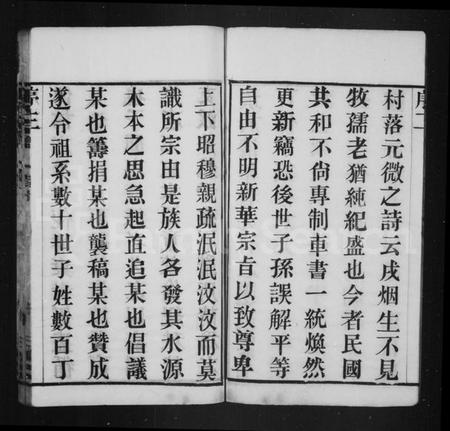 序二
村落元微之詩云戌烟生不見
牧孺老猶純紀盛也今者民國
共和不尙專制車書一統煥然
更新竊恐後世子孫誤解平等
自由不明新華宗旨以致尊卑
上下昭穆親疏泯泯汶汶而莫
識所宗由是族人各發其水源
木本之思急起直追某也倡議
某也籌捐某也襲稿某也贊成
遂令祖系數十世子姓數百丁
序三